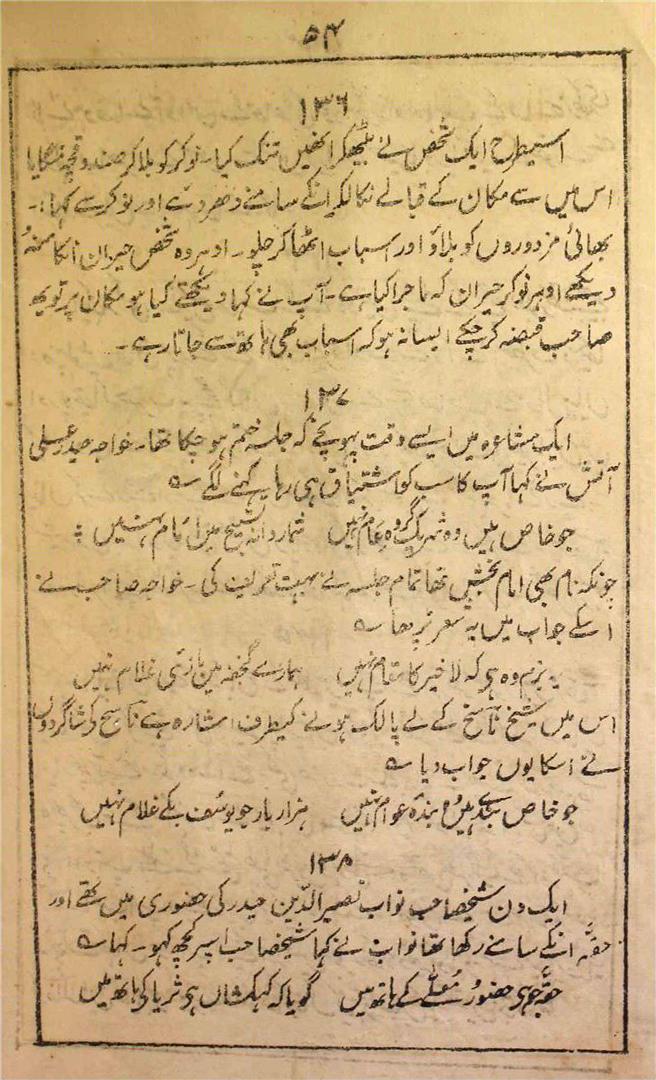 ۵۴
۱۳۶
اسیطرح ایک شخص نے بیٹھکر انھیں تنگ کیا۔ نوکر کو بلا کر صندوقچہ منگایا
اس میں سے مکان کے قبالے نکالکر انکے سامنے دھر دئے اور نوکر سے کہا:۔
بھائی مزدوروں کو بلاؤ اور اسباب اٹھا کر چلو۔ اودہر وہ شخص حیران انکا منھ
دیکھے اودہر نوکر حیران کہ ماجرا کیا ہے۔ آپ نے کہا دیکھتے کیا ہو مکان پر تو یہ
صاحب قبضہ کر چکے ایسا نہ ہو کہ اسباب بھی ہاتھ سے جاتا رہے۔
۱۳۷
ایک مشاعرہ میں ایسے وقت پہونچے کہ جلسہ ختم ہو چکا تھا۔ خواجہ حیدر علی
آتش نے کہا آپ کا سب کو اشتیاق ہی رہا۔ کہنے لگے ؎
جو خاص ہیں وہ شریک گروہ عام نہیں شمار دانۂ تسبیح میں امام نہیں :
چونکہ نام بھی امام بخش تھا تمام جلسہ نے بہت تعریف کی۔ خواجہ صاحب نے
اسکے جواب میں یہ شعر پڑھا ؎
یہ بزم وہ ہی کہ لا خیر کا مقام نہیں ہمارے گنجفہ میں بازئ غلام نہیں
اس میں شیخ ناسخ کے لے پالک ہونے کیطرف اشارہ ہے ناسخ کی شاگردوں
نے اسکا یوں جواب دیا ؎
جو خاص بندے ہیں وہ بندۂ عوام نہیں ہزار بار جو یوسف بکے غلام نہیں
۱۳۸
ایک دن شیخصاحب نواب نصیر الدین حیدر کی حضوری میں تھے اور
حقہ انکے سامنے رکھا تھا نواب نے کہا شیخصاحب اسپر کچھ کہو۔ کہا ؎
حقہ جو ہی حضور معلےٰ کے ہاتھ میں گویا کہ کہکشاں ہی ثریا کی ہاتھ میں